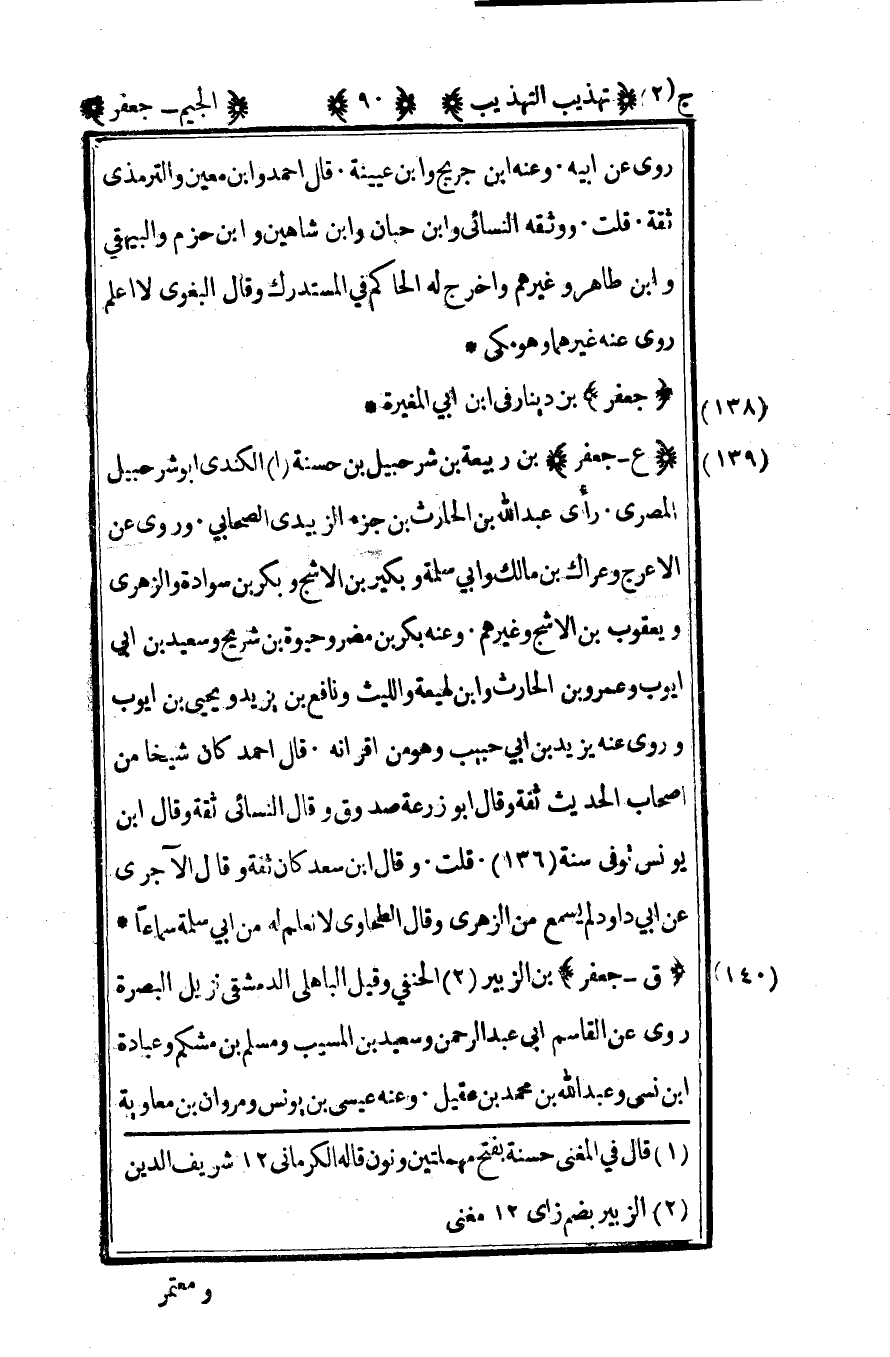 ج (٢) ﴿ تهذيب التهذيب ﴾ ﴿ ٩٠ ﴾ ﴿ الجيم ـ جعفر ﴾
روى عن ابيه · وعنه ابن جريج وابن عيينة · قال احمد وابن معين والترمذى
ثقة · قلت · ووثقه النسائى وابن حبان وابن شاهين و ابن حزم والبيهقي
و ابن طاهر و غيرهم واخرج له الحاكم في المستدرك وقال البغوى لا اعلم
روى عنه غيرهما وهو مكى *
(١٣٨) ﴿ جعفر ﴾ بن دينار فى ابن ابي المغيرة *
(١٣٩) ﴿ ع ـ جعفر ﴾ بن ربيعة بن شرحبيل بن حسنة (١) الكندى ابو شرحبيل
المصرى · رأى عبدالله بن الحارث بن جزء الزبيدى الصحابي · وروى عن
الاعرج وعراك بن مالك وابي سلمة و بكير بن الاشج و بكر بن سوادة والزهرى
و يعقوب بن الاشج وغيرهم · وعنه بكر بن مضر وحيوة بن شريح وسعيد بن ابي
ايوب وعمرو بن الحارث وابن لهيعة والليث ونافع بن يزيد ويحيى بن ايوب
و روى عنه يزيد بن ابي حبيب وهو من اقرانه · قال احمد كان شيخا من
اصحاب الحديث ثقة وقال ابو زرعة صدوق و قال النسائى ثقة وقال ابن
يونس توفى سنة (١٣٦) · قلت · و قال ابن سعد كان ثقة و قال الآجرى
عن ابي داود لم يسمع من الزهرى وقال الطحاوى لا نعلم له من ابي سلمة سماعاً *
(١٤٠) ﴿ ق ـ جعفر ﴾ بن الزبير (٢) الحنفي وقيل الباهلى الدمشقى نزيل البصرة
روى عن القاسم ابى عبد الرحمن وسعيد بن المسيب ومسلم بن مشكم وعبادة
ابن نسى وعبدالله بن محمد بن عقيل · وعنه عيسى بن يونس ومروان بن معاوية
(١) قال في المغنى حسنة بفتح مهملتين ونون قاله الكرمانى ١٢ شريف الدين
(٢) الزبير بضم زاى ١٢ مغنى
و معتمر